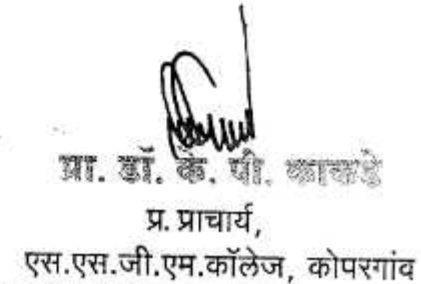 प्रा. डॉ. के. पी. काकडे
प्र. प्राचार्य,
एस.एस.जी.एम.कॉलेज, कोपरगांव